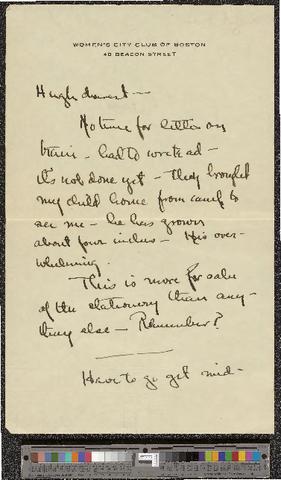 WOMEN'S CITY CLUB OF BOSTON
40 BEACON STREET
Hugh dearest —
No time for letter on
train — had to write ad —
it's not done yet — They brought
my child home from camp to
see me — he has grown
about four inches — It's over-
whelming.
This is more for sake
of the stationery than any-
thing else — Remember?
Have to go get mid-